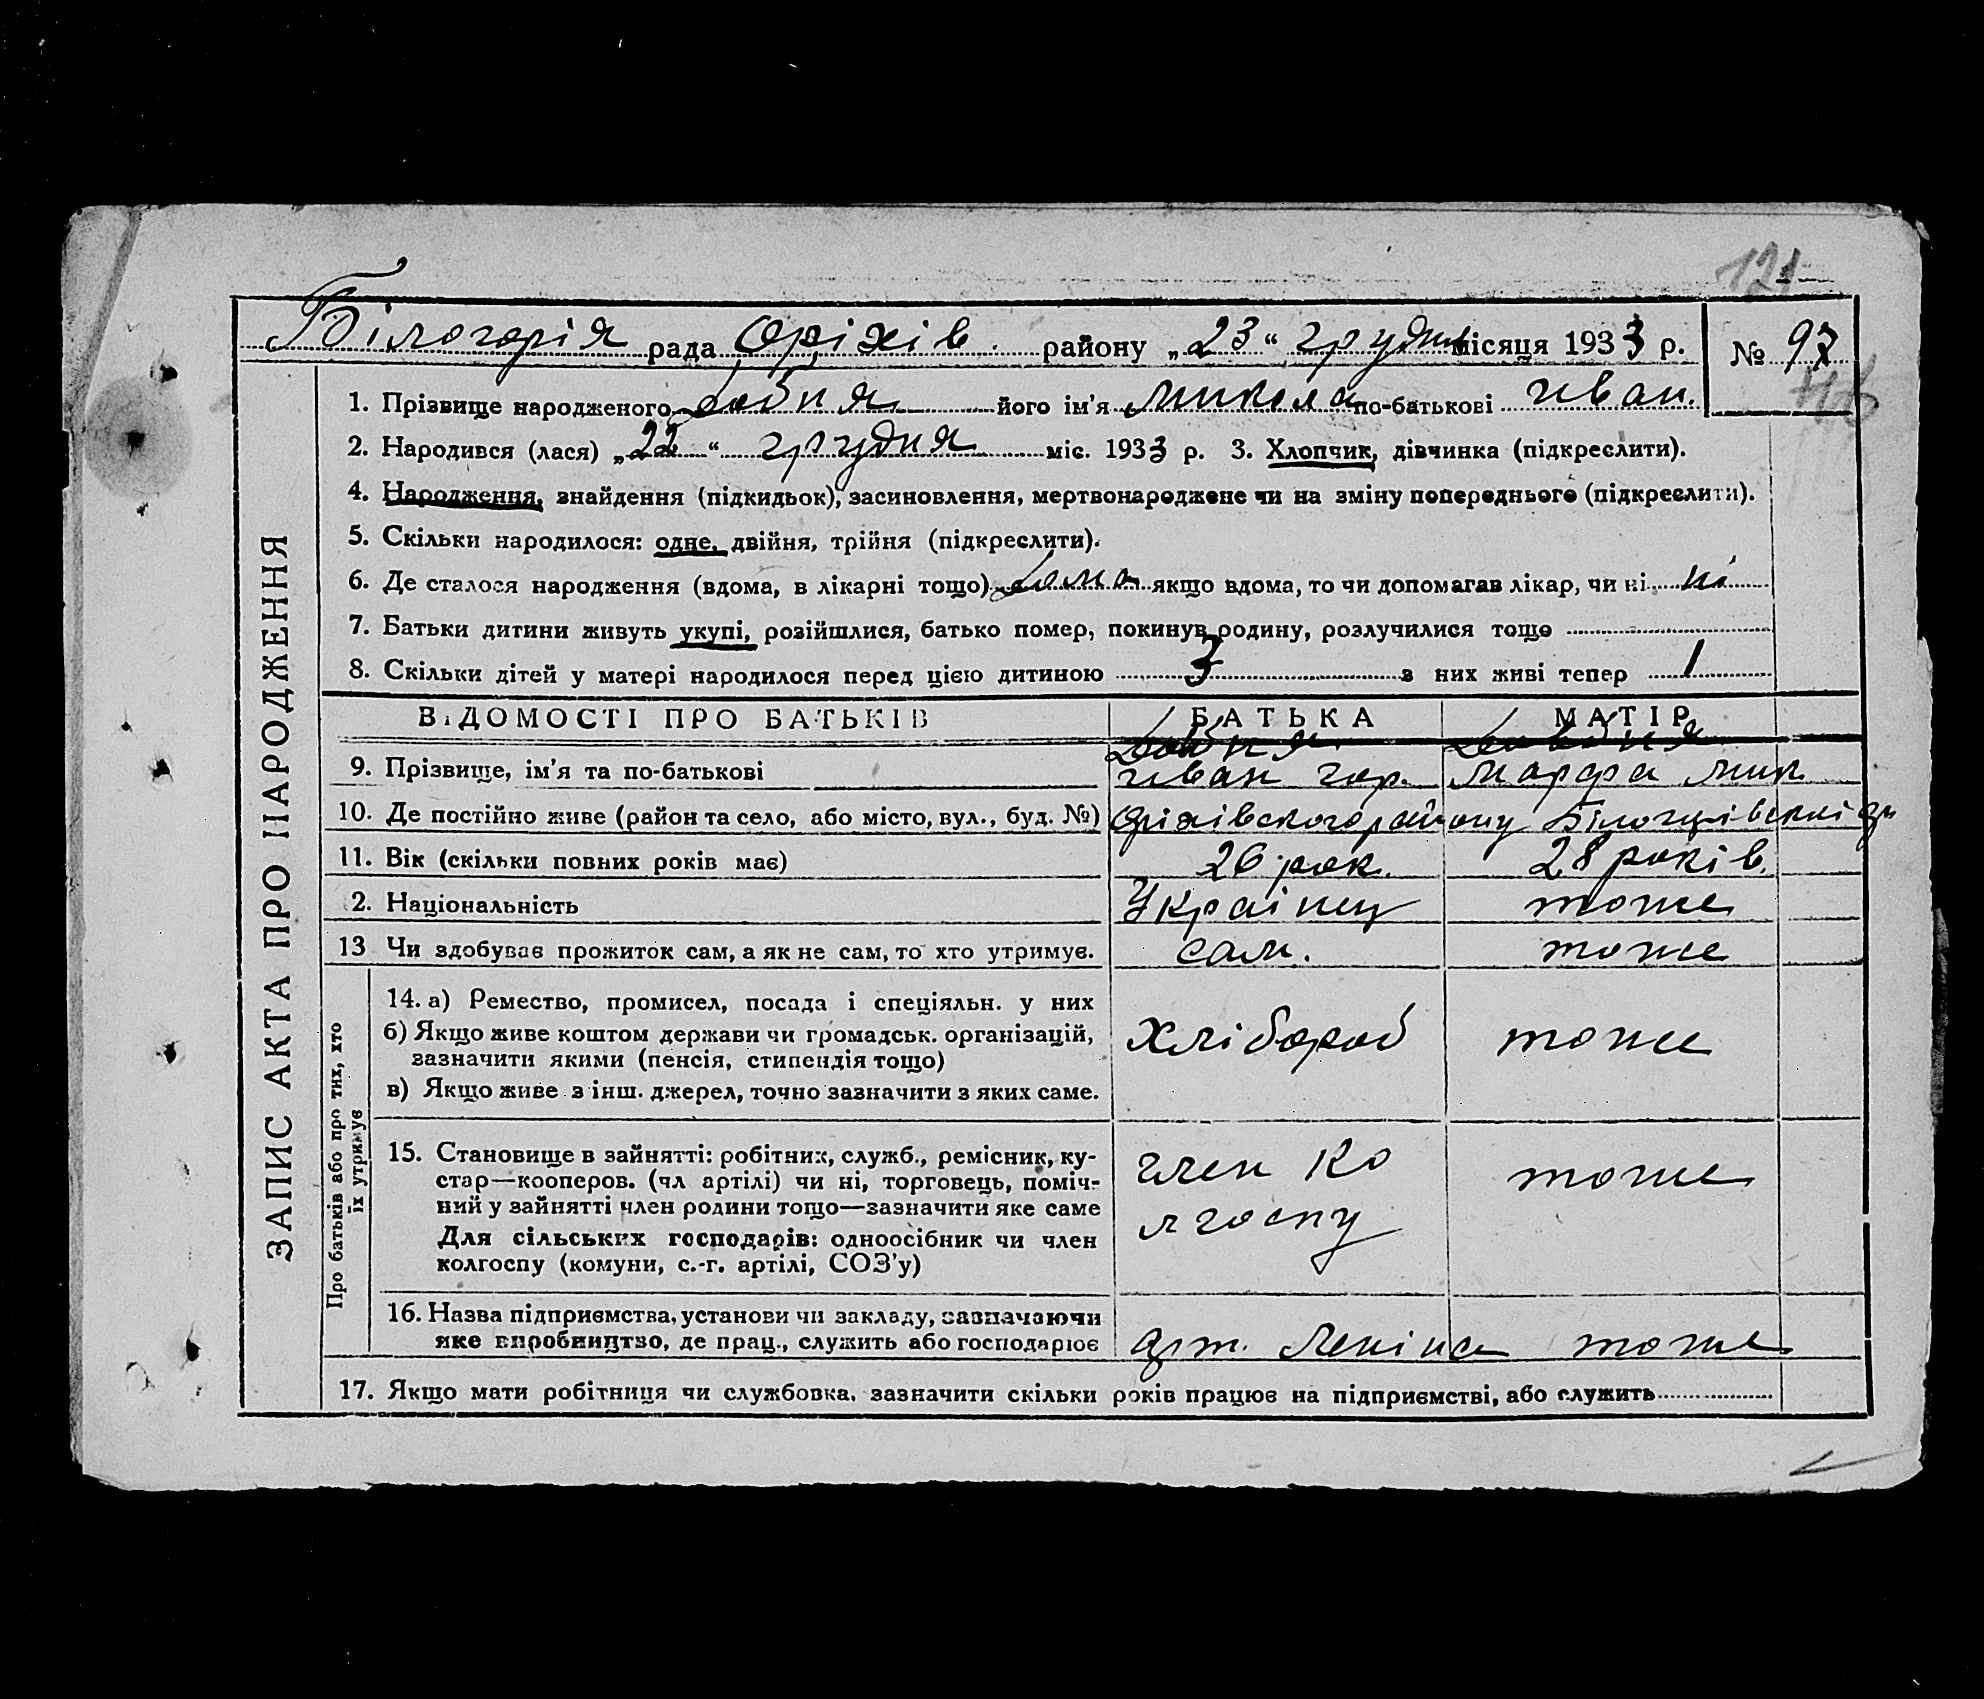 121
Білогорія рада Оріхів. району „23“ грудня місяця 1933 р. № 97
1. Прізвище народженого його ім'я Микола по-батькові Іван.
2. Народився (лася) „22“ грудня міс. 1933 р. 3. Хлопчик, дівчинка (підкреслити).
4. Народження, знайдення (підкидьок), засиновлення, мертвонароджене чи на зміну попереднього (підкреслити).
5. Скільки народилося: одне, двійня, трійня (підкреслити).
6. Де сталося народження (вдома, в лікарні тощо) дома якщо вдома, то чи допомагав лікар, чи ні ні
7. Батьки дитини живуть укупі, розійшлися, батько помер, покинув родину, розлучилися тощо
8. Скільки дітей у матері народилося перед цією дитиною 3 з них живі тепер 1
ВІДОМОСТІ ПРО БАТЬКІВ БАТЬКА МАТІР
9. Прізвище, ім'я та по-батькові Іван Гор. Марфа Мик
10. Де постійно живе (район та село, або місто, вул., буд. №) Оріхівского району
11. Вік (скільки повних років має) 26 рок. 28 років.
2. Національність Українец тоже
13 Чи здобуває прожиток сам, а як не сам, то хто утримує. сам. тоже
14. а) Ремество, промисел, посада і спеціяльн. у них
б) Якщо живе коштом держави чи громадськ. організацій,
зазначити якими (пенсія, стипендія тощо)
в) Якщо живе з інш. джерел, точно зазначити з яких саме.
Хлібороб тоже
15. Становище в зайнятті: робітник, служб., ремісник, ку-
стар—кооперов. (чл артілі) чи ні, торговець, поміч-
ний у зайнятті член родини тощо—зазначити яке саме
Для сільських господарів: одноосібник чи член
колгоспу (комуни, с.-г. артілі, СОЗ'у)
член ко
лгоспу
тоже
16. Назва підприємства, установи чи закладу, зазначаючи
яке виробництво, де прац., служить або господарює арт. Леніна тоже
17. Якщо мати робітниця чи службовка, зазначити скільки років працює на підприємстві, або служить
ЗАПИС АКТА ПРО НАРОДЖЕННЯ
Про батьків або про тих, хто
їх утримує